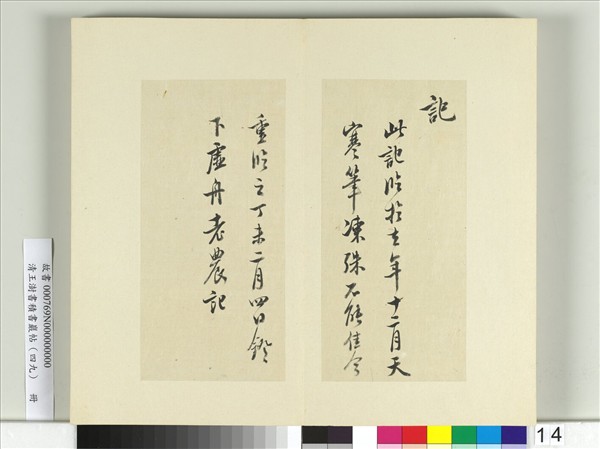 記
此記臨於去年十二月天
寒筆凍殊不能佳今
重臨之丁未二月四日鐙
下虛舟老農記
故書 000769N000000000
清王澍書積書巖帖(四九) 冊
14